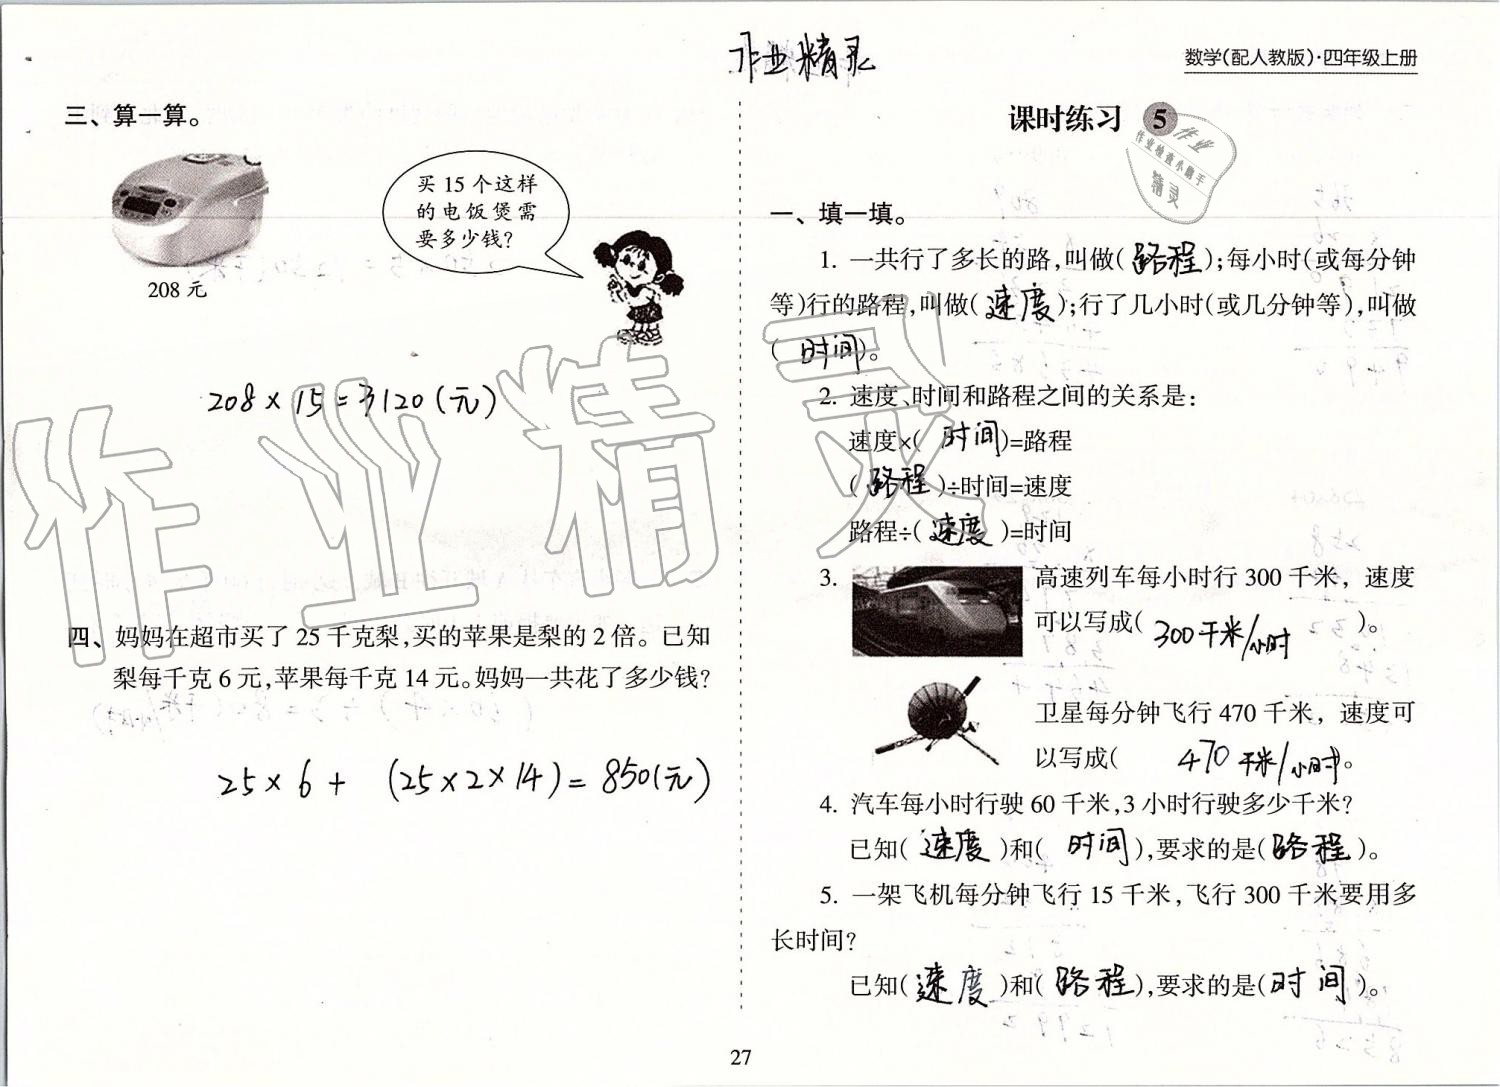 作业精灵
数学(配人教版)·四年级上册
三、算一算。
买15个这样
的电饭煲需
要多少钱?
208元
208×15=3120(元)
四、妈妈在超市买了25千克梨,买的苹果是梨的2倍。已知
梨每千克6元,苹果每千克14元。妈妈一共花了多少钱?
25×6+(25×2×14)=850(元)
课时练习 5
作业
作业检查小助手
精灵
一、填一填。
1. 一共行了多长的路,叫做(路程);每小时(或每分钟
等)行的路程,叫做(速度);行了几小时(或几分钟等),叫做
(时间)。
2. 速度、时间和路程之间的关系是:
速度×(时间)=路程
(路程)÷时间=速度
路程÷(速度)=时间
3. 高速列车每小时行300千米，速度
可以写成(300千米/小时)。
卫星每分钟飞行470千米，速度可
以写成(470千米/小时)。
4. 汽车每小时行驶60千米,3小时行驶多少千米?
已知(速度)和(时间),要求的是(路程)。
5. 一架飞机每分钟飞行15千米,飞行300千米要用多
长时间?
已知(速度)和(路程),要求的是(时间)。
作业精灵
27